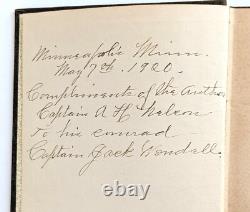 Minneapolis Minn.
May 7th. 1920.
Compliments of the Author
Captain A H Nelson
To his comrad
Captain Jack Wendall.